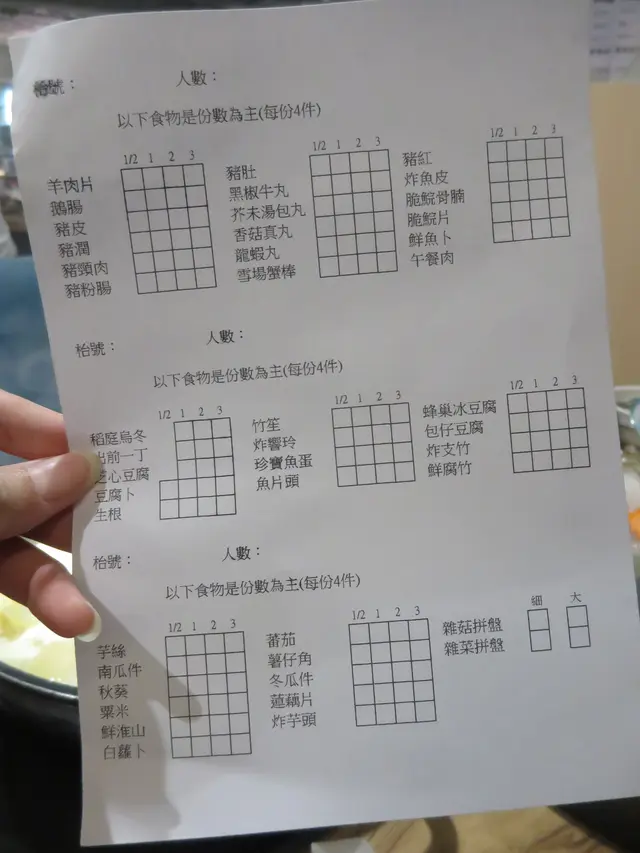 枱號： 人數：
以下食物是份數為主(每份4件)
1/2 1 2 3
羊肉片
鵝腸
豬皮
豬潤
豬頸肉
豬粉腸
1/2 1 2 3
豬肚
黑椒牛丸
芥未湯包丸
香菇真丸
龍蝦丸
雪場蟹棒
1/2 1 2 3
豬紅
炸魚皮
脆鯇骨腩
脆鯇片
鮮魚卜
午餐肉
枱號： 人數：
以下食物是份數為主(每份4件)
1/2 1 2 3
稻庭烏冬
出前一丁
心豆腐
豆腐卜
生根
1/2 1 2 3
竹笙
炸響玲
珍寶魚蛋
魚片頭
1/2 1 2 3
蜂巢冰豆腐
包仔豆腐
炸支竹
鮮腐竹
枱號： 人數：
以下食物是份數為主(每份4件)
1/2 1 2 3
芋絲
南瓜件
秋葵
粟米
鮮淮山
白蘿卜
1/2 1 2 3
蕃茄
薯仔角
冬瓜件
蓮藕片
炸芋頭
細 大
雜菇拼盤
雜菜拼盤